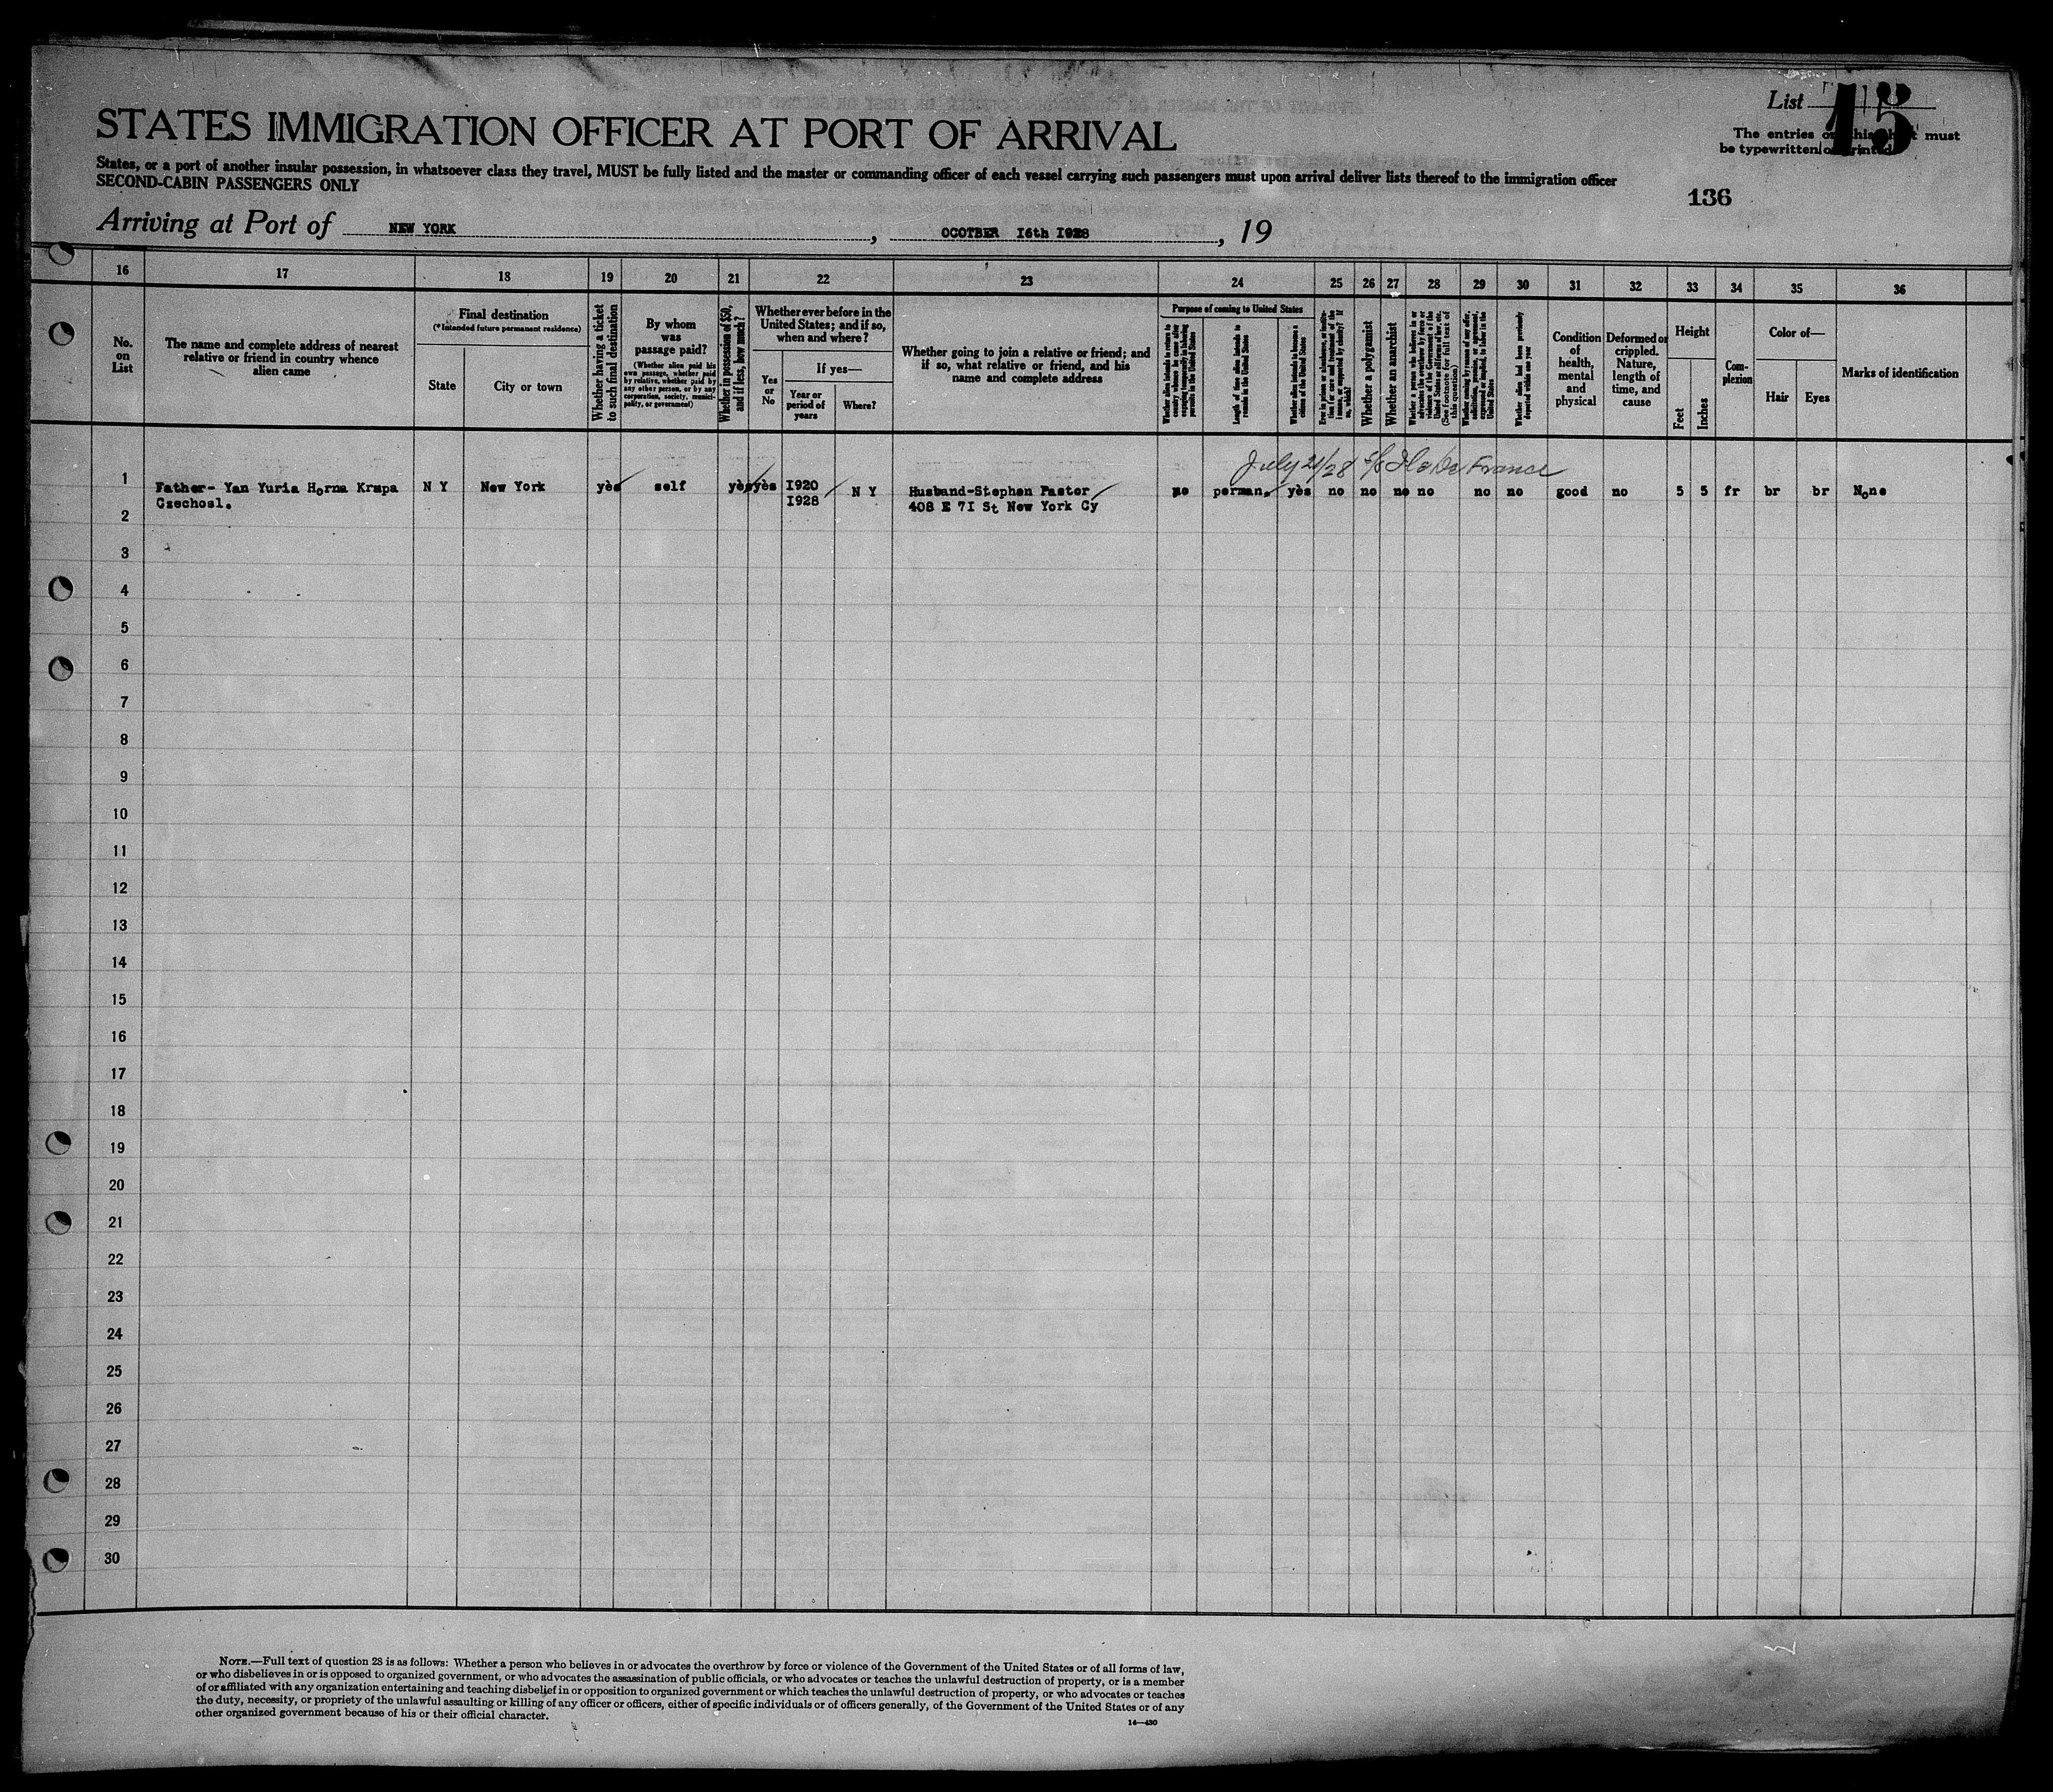 List 15
STATES IMMIGRATION OFFICER AT PORT OF ARRIVAL
The entries on this sheet must
be typewritten or printed
States, or a port of another insular possession, in whatsoever class they travel, MUST be fully listed and the master or commanding officer of each vessel carrying such passengers must upon arrival deliver lists thereof to the immigration officer
SECOND-CABIN PASSENGERS ONLY
136
Arriving at Port of NEW YORK, OCOTBER 16th 1928, 19
16 17 18 19 20 21 22 23 24 25 26 27 28 29 30 31 32 33 34 35 36
No.
on
List
The name and complete address of nearest
relative or friend in country whence
alien came
Final destination
(*Intended future permanent residence)
State
City or town
Whether having a ticket
to such final destination
By whom
was
passage paid?
(Whether alien paid his
own passage, whether paid
by relative, whether paid by
any other person, or by any
corporation, society, munici-
pality, or government)
Whether in possession of $50,
and if less, how much?
Whether ever before in the
United States; and if so,
when and where?
Yes
or
No
If yes—
Year or
period of
years
Where?
Whether going to join a relative or friend; and
if so, what relative or friend, and his
name and complete address
Purpose of coming to United States
Whether alien intends to return to
country whence he came after
engaging temporarily in laboring
pursuits in the United States
Length of time alien intends to
remain in the United States
Whether alien intends to become a
citizen of the United States
Whether a polygamist
Whether an anarchist
Whether alien had been previously
deported within one year
Condition
of
health,
mental
and
physical
Deformed or
crippled.
Nature,
length of
time, and
cause
Height
Feet
Inches
Com-
plexion
Color of—
Hair
Eyes
Marks of identification
July 21/28 s/s Ile De France
1 Father- Yan Yuria Horna Krupa N Y New York yès self yès yès 1920 N Y Husband-Stephen Pastor no perman. yès no no no no no no good no 5 5 fr br br None
Czechosl. 1928 408 E 71 St New York Cy
2
3
4
5
6
7
8
9
10
11
12
13
14
15
16
17
18
19
20
21
22
23
24
25
26
27
28
29
30
NOTE.—Full text of question 28 is as follows: Whether a person who believes in or advocates the overthrow by force or violence of the Government of the United States or of all forms of law,
or who disbelieves in or is opposed to organized government, or who advocates the assassination of public officials, or who advocates or teaches the unlawful destruction of property, or is a member
of or affiliated with any organization entertaining and teaching disbelief in or opposition to organized government or which teaches the unlawful destruction of property, or who advocates or teaches
the duty, necessity, or propriety of the unlawful assaulting or killing of any officer or officers, either of specific individuals or of officers generally, of the Government of the United States or of any
other organized government because of his or their official character.
14—430